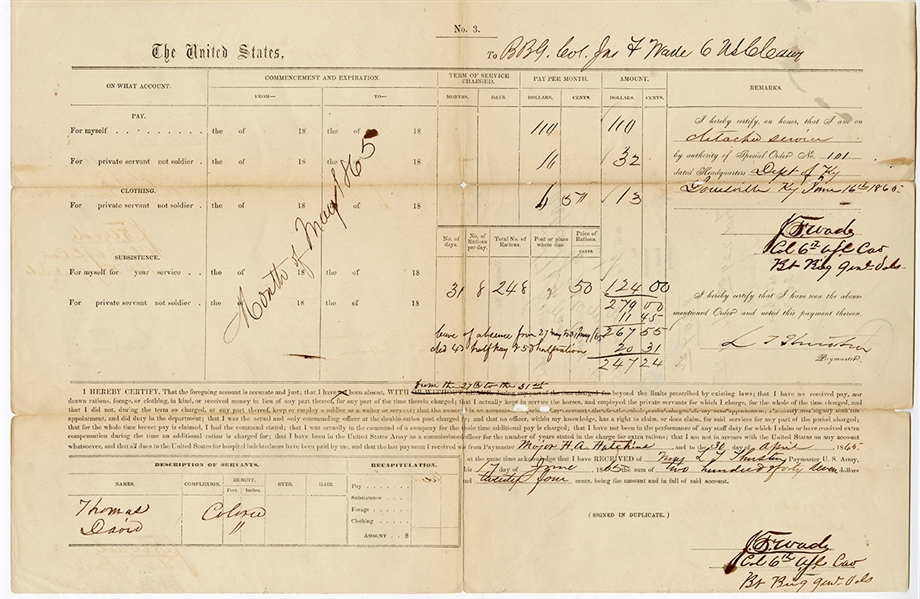 No. 3.
The United States,
To B B G. Col. Jas F Wade 6 US Cl Cavy
ON WHAT ACCOUNT.
COMMENCEMENT AND EXPIRATION.
TERM OF SERVICE CHARGED.
PAY PER MONTH.
AMOUNT.
REMARKS.
FROM— TO— MONTHS. DAYS. DOLLARS. CENTS. DOLLARS. CENTS.
PAY.
For myself . . . . . . . . . the of 18 the of 18 110 110
For private servant not soldier . the of 18 the of 18 16 32
CLOTHING.
For private servant not soldier . the of 18 the of 18 6 50 13
SUBSISTENCE.
No. of days. No. of Rations per day. Total No. of Rations. Post or place where due. Price of Rations. CENTS.
For myself for year service . . the of 18 the of 18
31 8 248 50 124 00
For private servant not soldier . the of 18 the of 18
Month of May 1865
279 00
11 45
leave of absence from 27 May to 31 May/65 267 55
ded 4D half pay & 5D half ration 20 31
247 24
I hereby certify, on honor, that I am on
detached service
by authority of Special Order No. 101
dated Headquarters Dept of Ky
Louisville Ky June 16th 1865
J. F. Wade
Col 6th Cav
Bt Brig Genl Vols
I hereby certify that I have seen the above-
mentioned Order and noted this payment thereon.
Paymaster.
from the 27th to the 31st
I HEREBY CERTIFY, That the foregoing account is accurate and just; that I have been absent, WITH OR WITHOUT LEAVE, during any part of the time charged for beyond the limits prescribed by existing laws; that I have not received pay, nor
drawn rations, forage, or clothing, in kind, or received money in lieu of any part thereof, for any part of the time and
that I did not, during the term so charged, or any part thereof, keep or employ a soldier as a waiter or servant;
appointment, and did duty in the department; that I was the actual and sole commanding officer at the double-ration post charged for;
that for the whole time brevet pay is claimed, I had the command stated; that I was actually in the command of a company for the
compensation during the time an additional ration is charged for; that I have been in the United States Army as a commissioned officer for the number of years stated in the charge for extra rations; that I am not in arrears with the United States on any account
whatsoever, and that
the last payment I received was from Paymaster Major H. A. Hutchins and to the 30 day of April 1865
at the same time acknowledge that I have RECEIVED of Maj L T Thustin Paymaster U. S. Army,
this 17 day of June 1865 the sum of two hundred & forty seven dollars
and twenty four cents, being the amount and in full of said account.
(SIGNED IN DUPLICATE.)
DESCRIPTION OF SERVANTS.
NAMES. COMPLEXION. HEIGHT. Feet. Inches. EYES. HAIR.
Thomas Colored
David "
RECAPITULATION.
Pay . . . . .
Subsistence . .
Forage . . . .
Clothing . . .
AMOUNT . . $
J. F. Wade
Col 6th Cav
Bt Brig Genl Vols